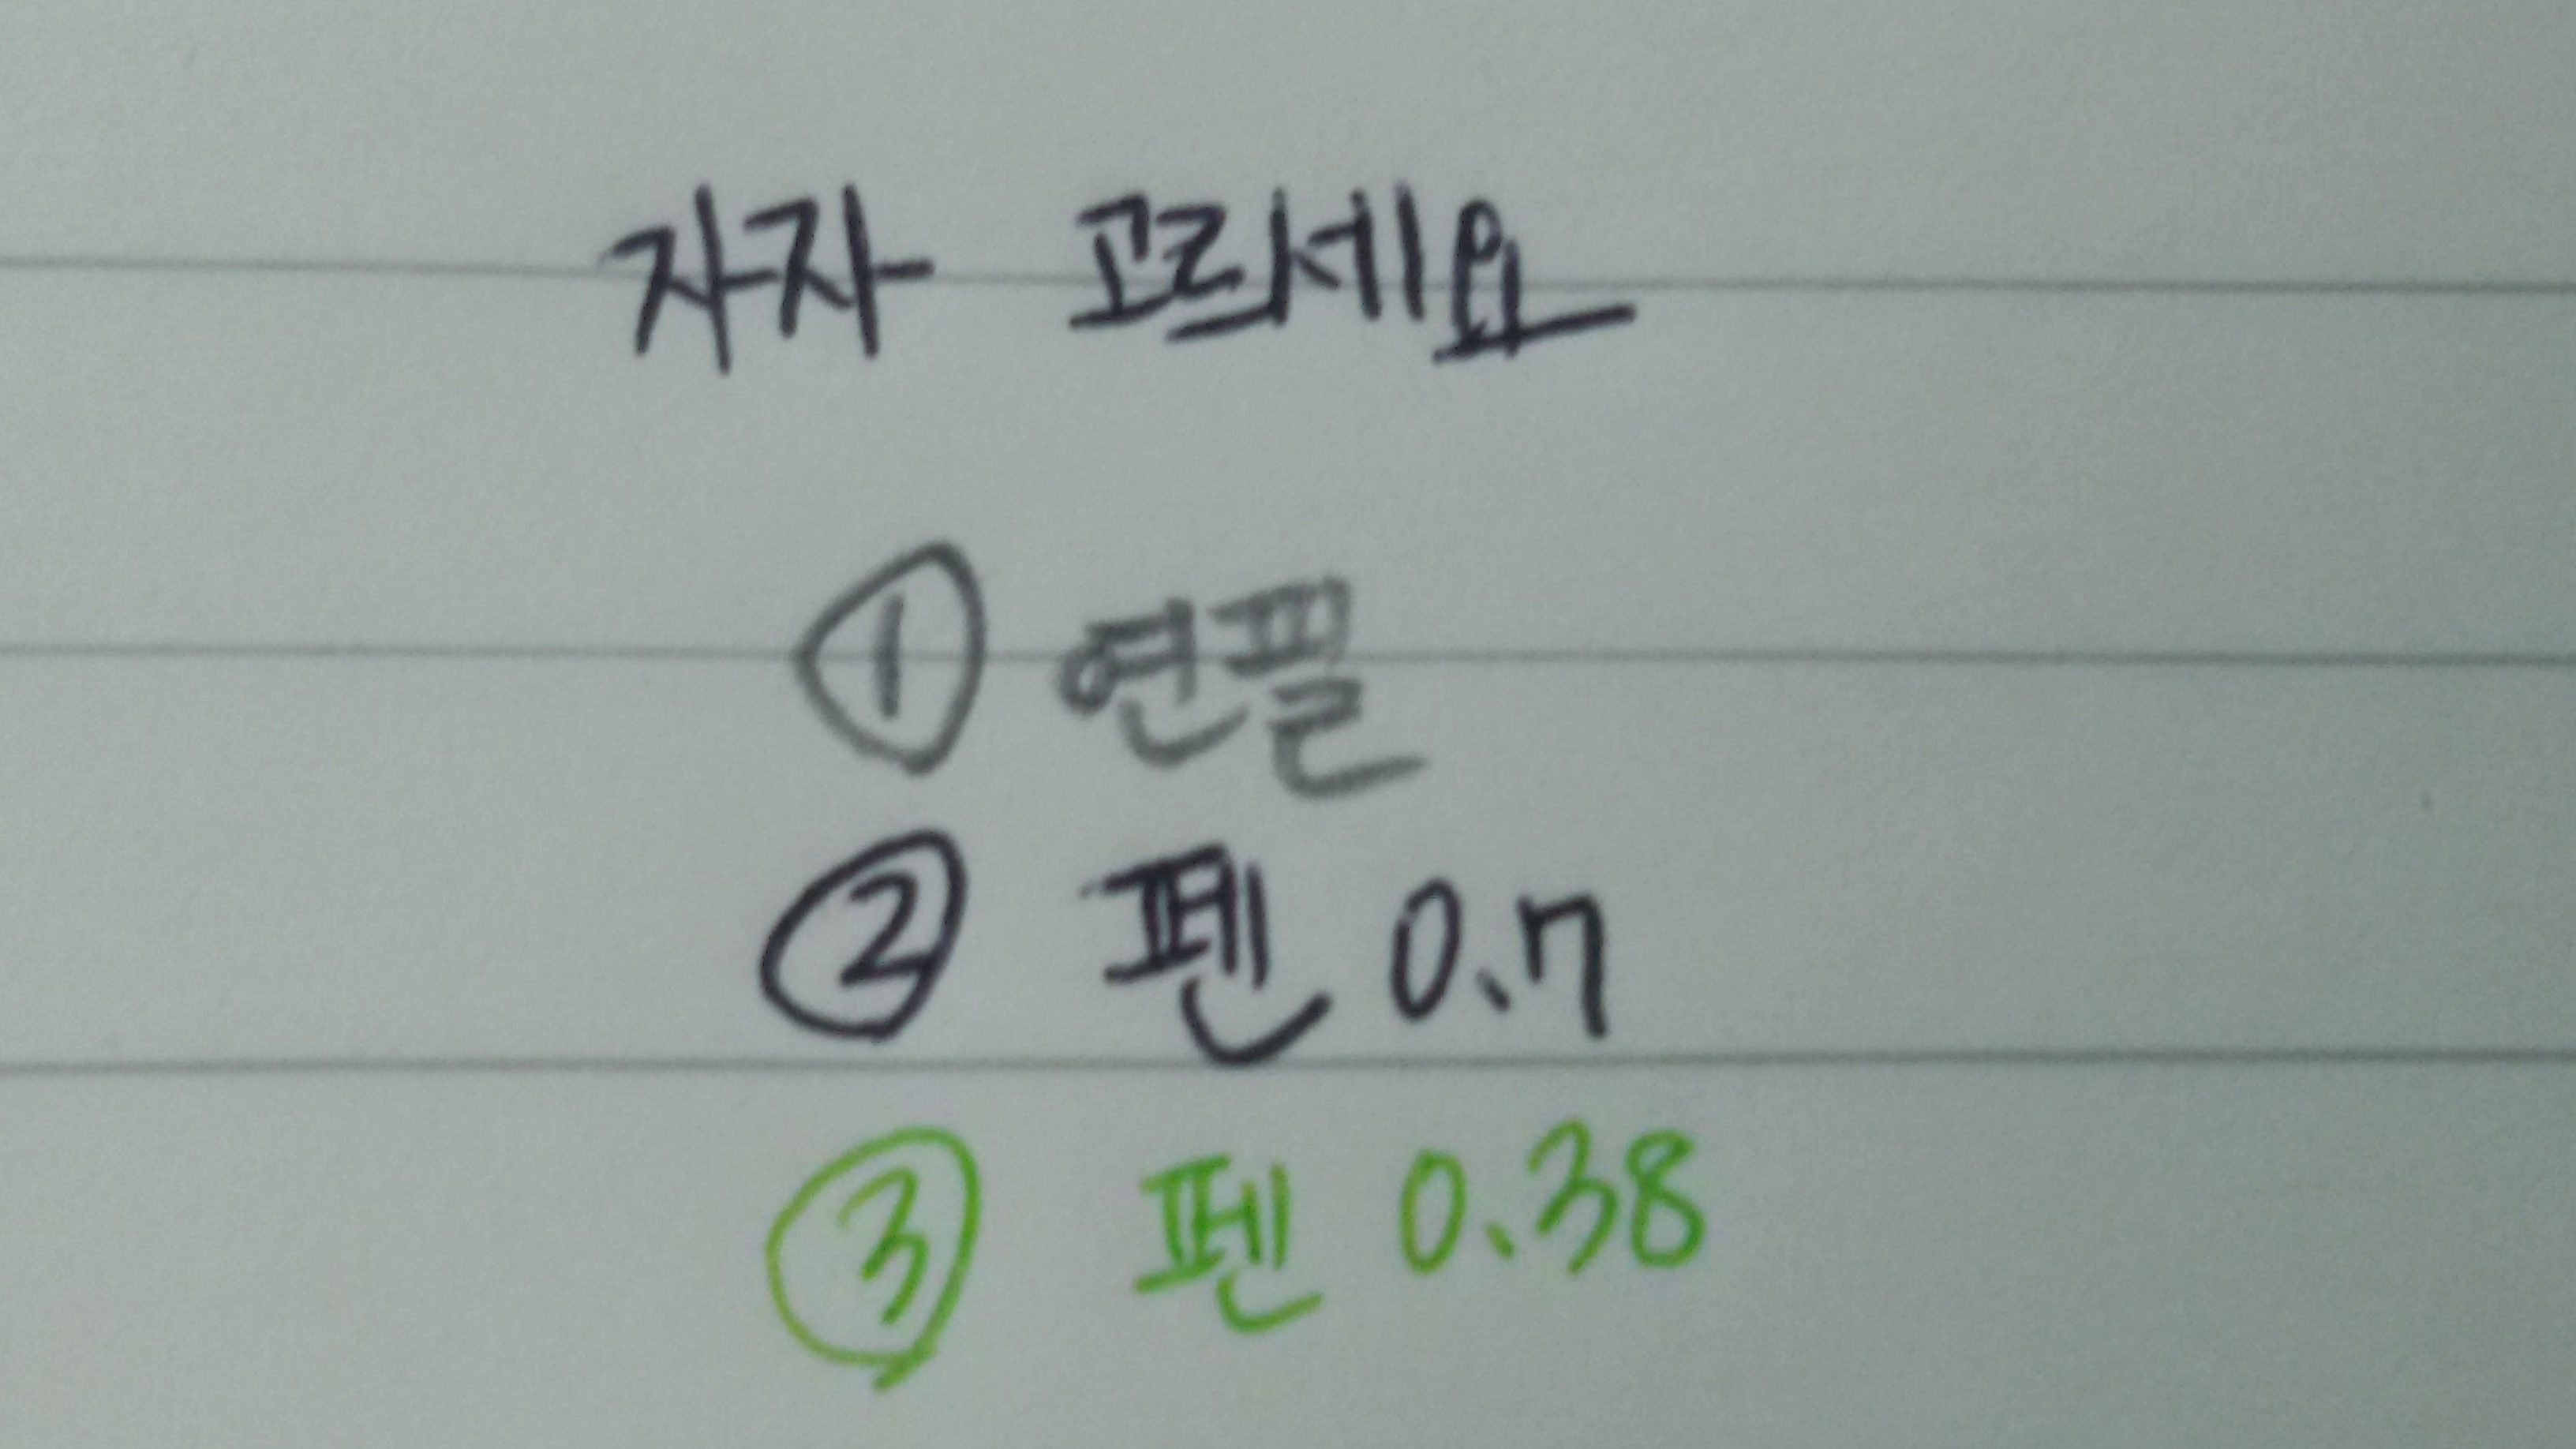 자자 고르세요
① 연필
② 펜 0.7
③ 펜 0.38